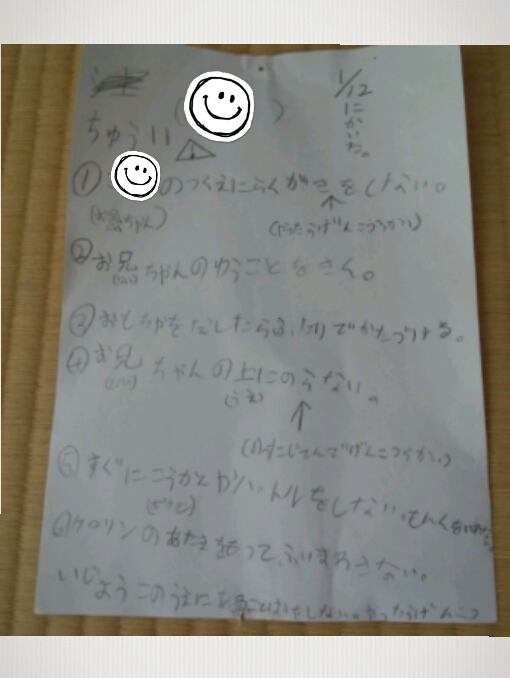 1/12にかいた。
ちゅうい
( )
① のつくえにらくがきをしない。
(お兄ちゃん)
(やったらげんこつ
②お兄ちゃんのゆうことをきく。
(にい)
③おもちゃをだしたらふたりでかたづける。
④お兄ちゃんの上にのらない。
(にい) (うえ)
げんこつ
⑤すぐに とかバトルをしない。もんくを
⑥ケロリンのあたまをもって、ふりまわさない。
いじょうこのうえにある をしない。やったらげんこつ